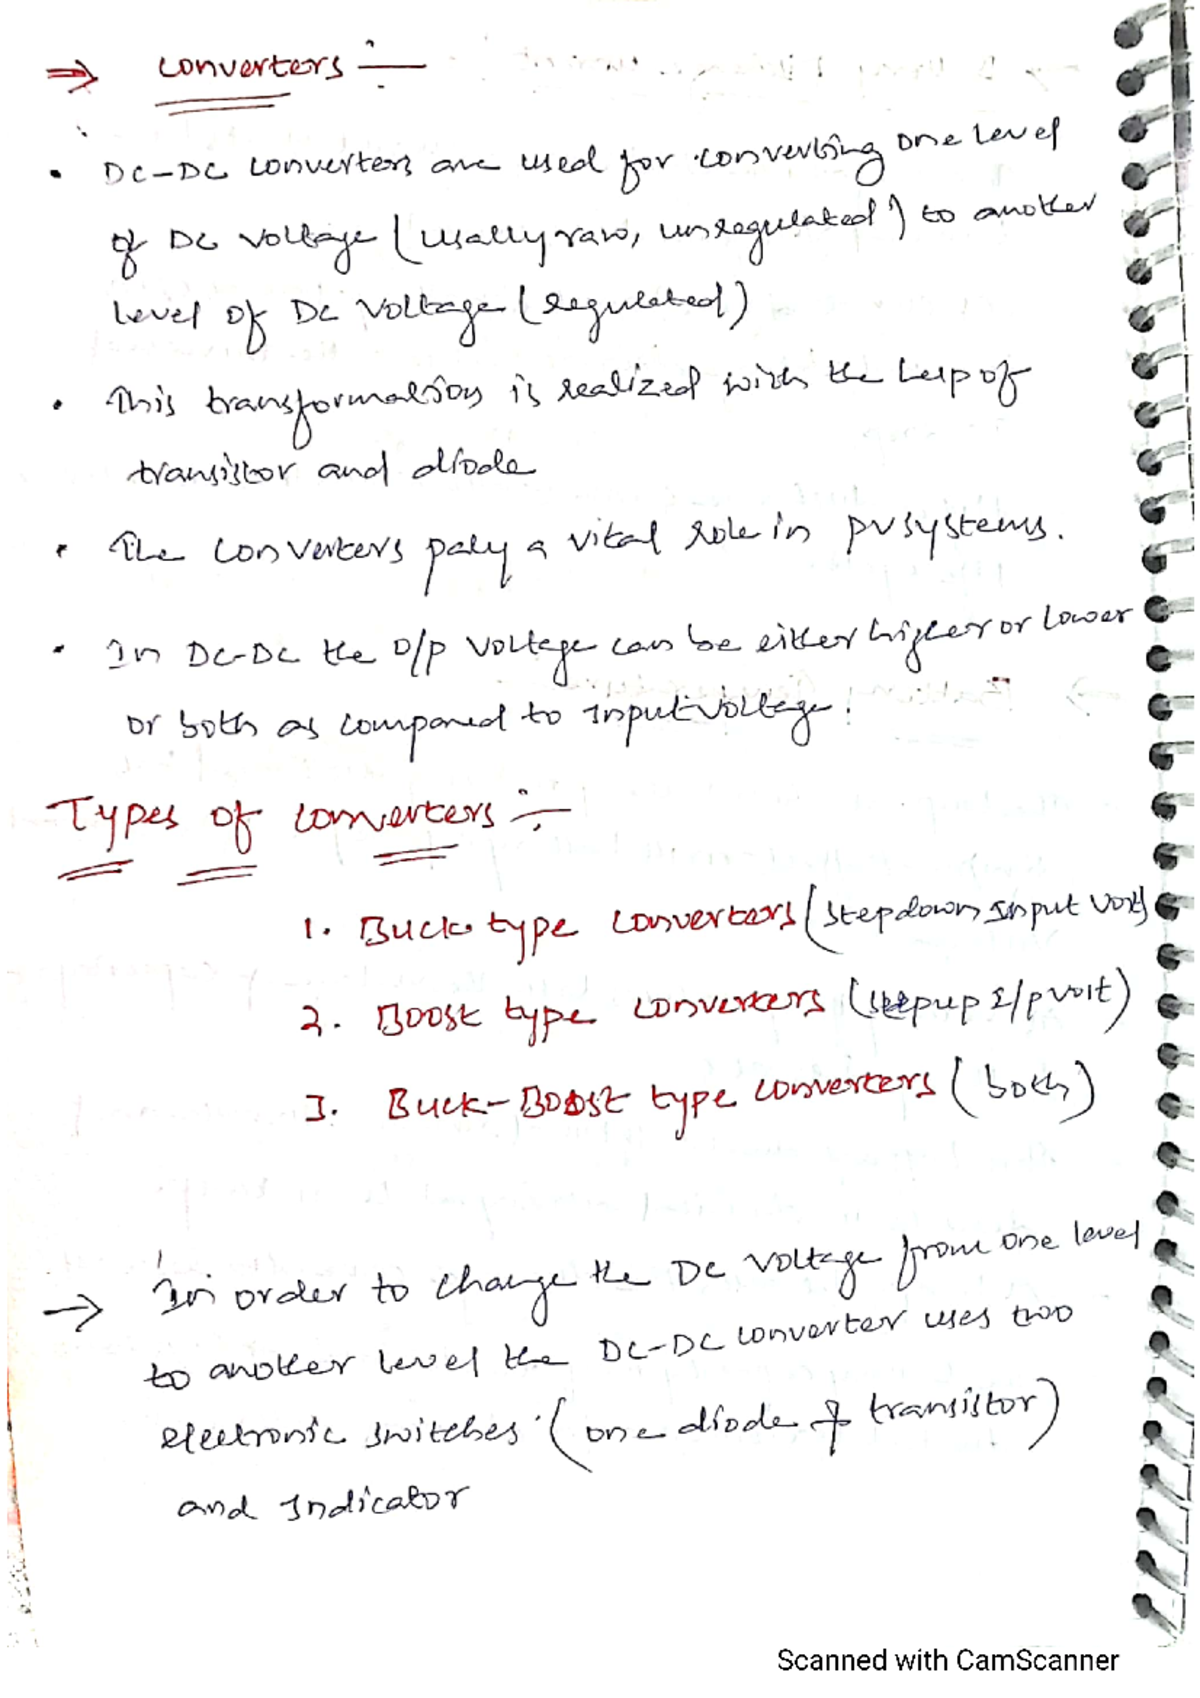 ⇒ converters :-
• DC-DC converters are used for converting one level
of DC voltage (usally raw, unregulated) to another
level of DC voltage (regulated)
• This transformation is realized with the help of
transistor and diode
• The converters paly a vital role in pv systems.
• In DC-DC the O/P voltage can be either higher or lower
or both as compared to Input voltage.
Types of converters :-
1. Buck type converters (stepdown Input volt)
2. Boost type converters (stepup I/p volt)
3. Buck-Boost type converters (both)
→ In order to change the DC voltage from one level
to another level the DC-DC converter uses two
electronic switches (one diode & transistor)
and Indicator
Scanned with CamScanner